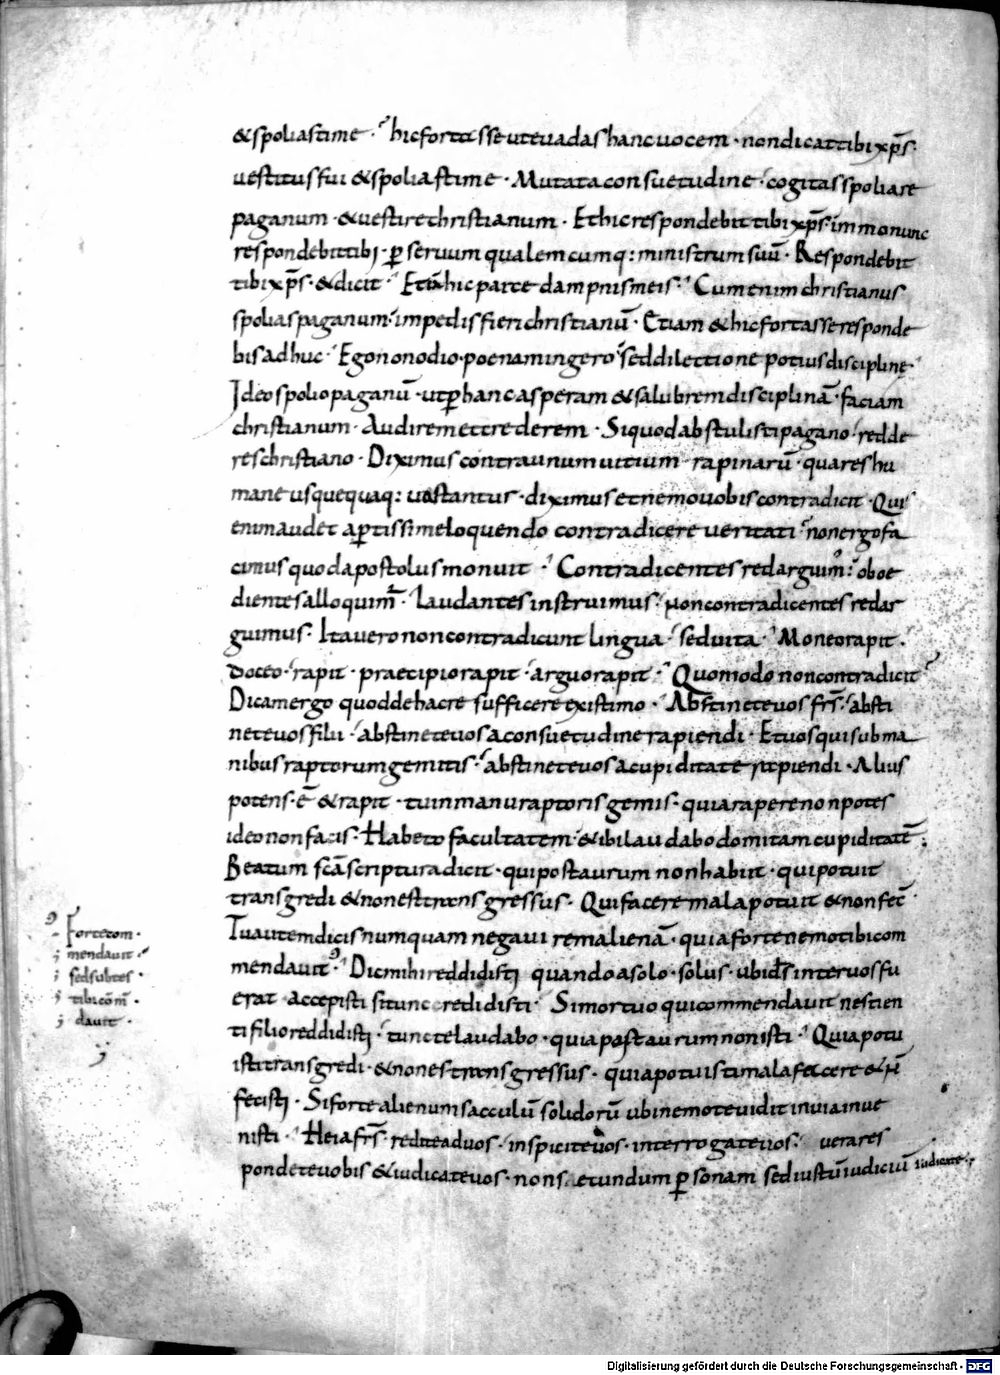 & spoliasti me · hic fortasse ut euadas hanc uocem · non dicat tibi xp̄s ·
uestitus fui & spoliasti me · Mutata consuetudine · cogitas spoliare
paganum · & uestire christianum · Et hic respondebit tibi xp̄s · immo nunc
respondebit tibi · ꝑ seruum qualemcumq: ministrum suū · Respondebit
tibi xp̄s · & dicit · Etiā hic parce dampnis meis · Cum enim christianus
spolias paganum · impedis fieri christianū · Etiam & hic fortasse responde
bis adhuc · Ego non odio · poenam ingero · sed dilectione potius discipline
Ideo spolio paganū · ut ꝑ hanc asperam & salubrem disciplinā · faciam
christianum · Audirem et crederem · Si quod abstulisti pagano · redde
res christiano · Diximus contra unum uitium rapinarū · qua res hu
mane usquequaq: uastantur · diximus et nemo uobis contradicit · Qui
enim audet aꝑtissime loquendo contradicere ueritati · non ergo fa
cimus quod apostolus monuit · Contradicentes redarguim᷒ : oboe
dientes alloquim᷒ · laudantes instruimus · non contradicentes redar
guimus · Ita uero non contradicunt lingua · sed uita · Moneo rapit ·
doceo · rapit · praecipio rapit · arguo rapit · Quomodo non contradicit
Dicam ergo quod de hac re sufficere existimo · Abstinete uos frs̄ · absti
nete uos filii · abstinete uos a consuetudine rapiendi · Et uos qui sub ma
nibus raptorum gemitis · abstinete uos a cupiditate rapiendi · Alius
potens · ē & rapit · tu in manu raptoris gemis · quia rapere non potes
ideo non facis · Habeto facultatem · & ibi laudabo domitam cupiditatē ;
Beatum scā scriptura dicit · qui post aurum non habiit · qui potuit
transgredi & non est transgressus · Qui facere mala potuit & non fec̄ ·
Tu autem dicis numquam negaui rem alienā · quia forte nemo tibi com
mendauit · Dic mihi reddidisti quando a solo · solus · ubi ds̄ inter uos fu
erat accepisti si tunc redidisti · Si mortuo qui commendauit nescien
ti filio reddidisti · tunc te laudabo · quia post aurum non isti · Quia potu
isti transgredi · & non es transgressus · quia potuisti mala facere & n̄
fecisti · Si forte alienum sacculū solidorū ubi nemo te uidit in uia inue
nisti · Heia frs̄ · redite ad uos · inspicite uos · interrogate uos · uera res
pondete uobis & iudicate uos · non secundum ꝑsonam sed iustū iudiciū iudicate ·
Forte com
mendauit ·
sed sub tes
ti com̄
dauit ·